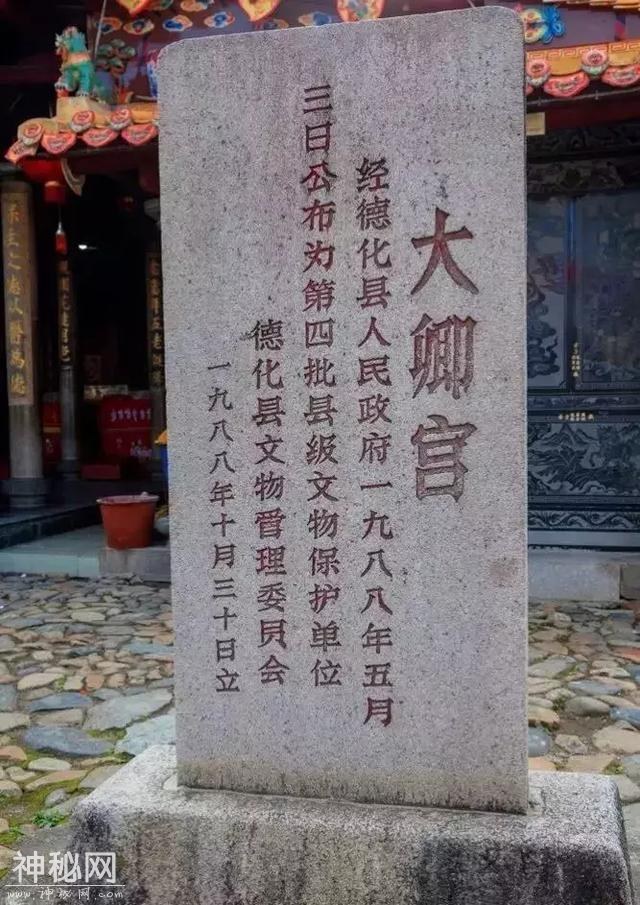 大卿宫
经德化县人民政府一九八八年五月
三日公布为第四批县级文物保护单位
德化县文物管理委员会
一九八八年十月三十日立
神秘网
www.神秘网.com